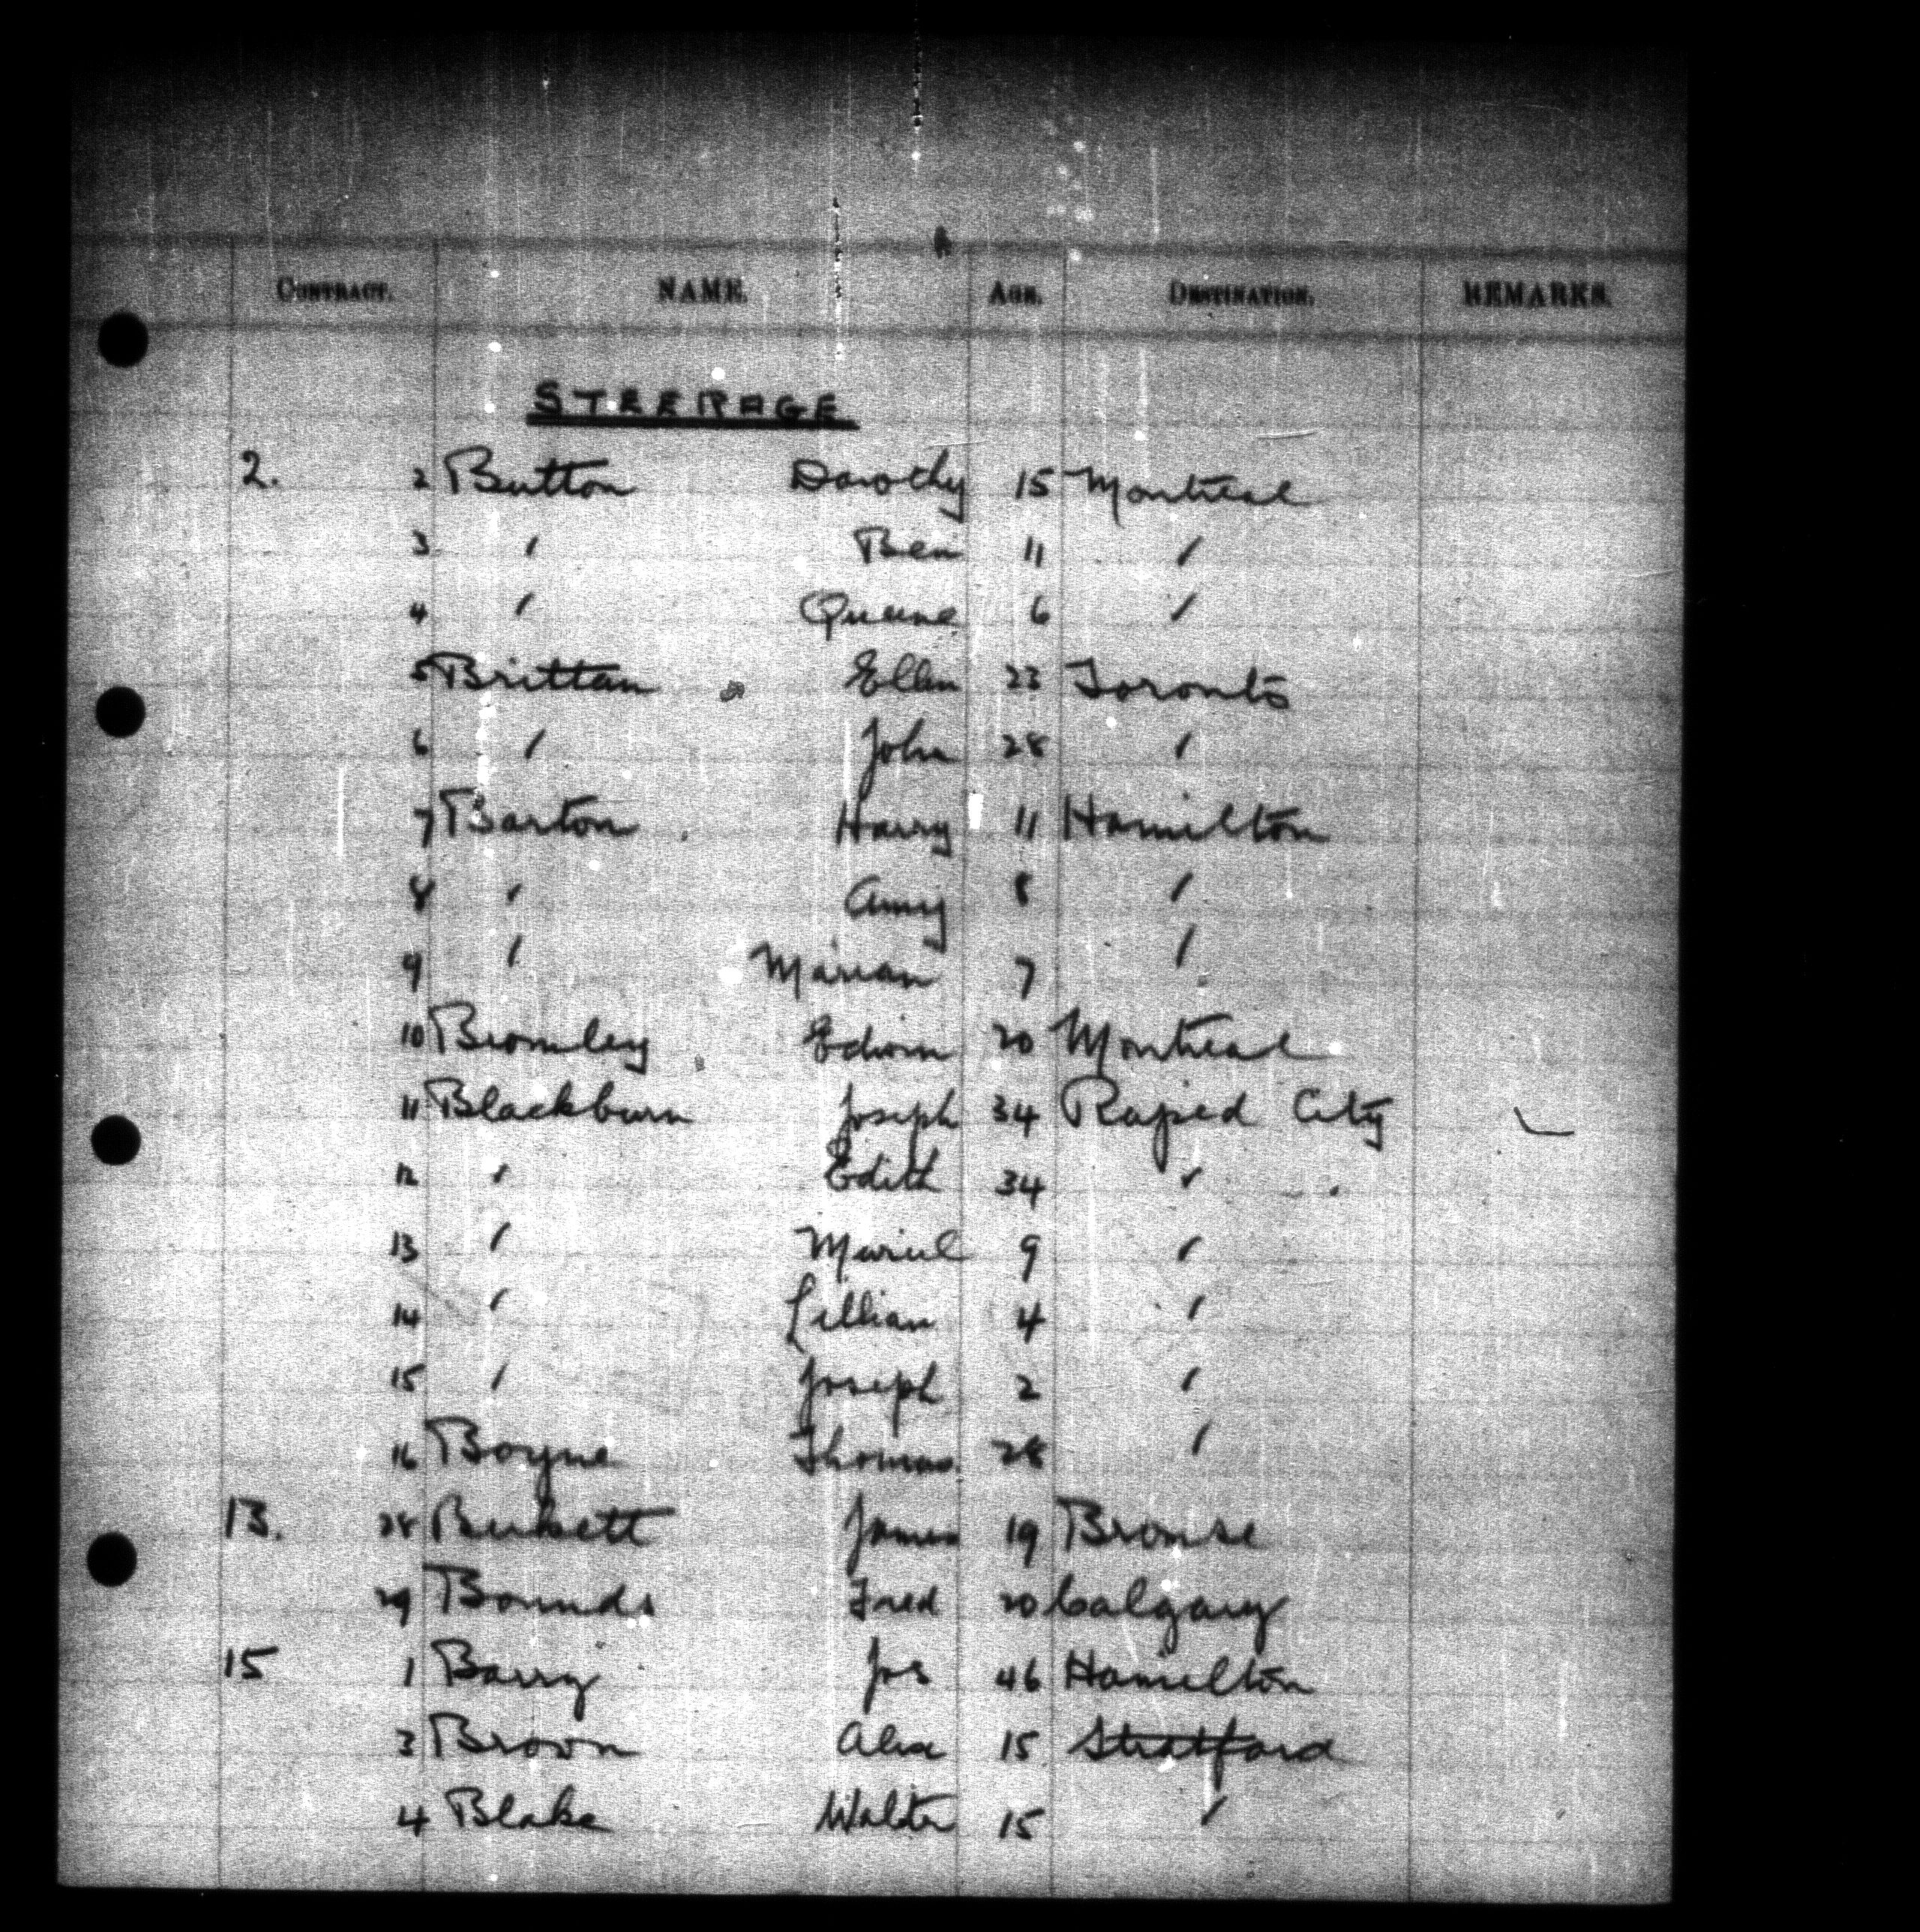 CONTRACT. NAME. AGE. DESTINATION. REMARKS.
STEERAGE
2. 2 Button Dorothy 15 Montreal
3 " Ben 11 "
4 " 6 "
5 Brittan Ellen 23 Toronto
6 " John 28 "
7 Barton Harry 11 Hamilton
8 " Amy 8 "
9 " Marian 7 "
10 Bromley Edwin 20 Montreal
11 Blackburn Joseph 34 Rapid City
12 " Edith 34 "
13 " Muriel 9 "
14 " Lillian 4 "
15 " Joseph 2 "
16 Boyne Thomas 28 "
13. 28 James 19
29 Bounds Fred 20 Calgary
15 1 Barry Jos 46 Hamilton
3 Brown Alex 15 Stratford
4 Blake Walter 15 "